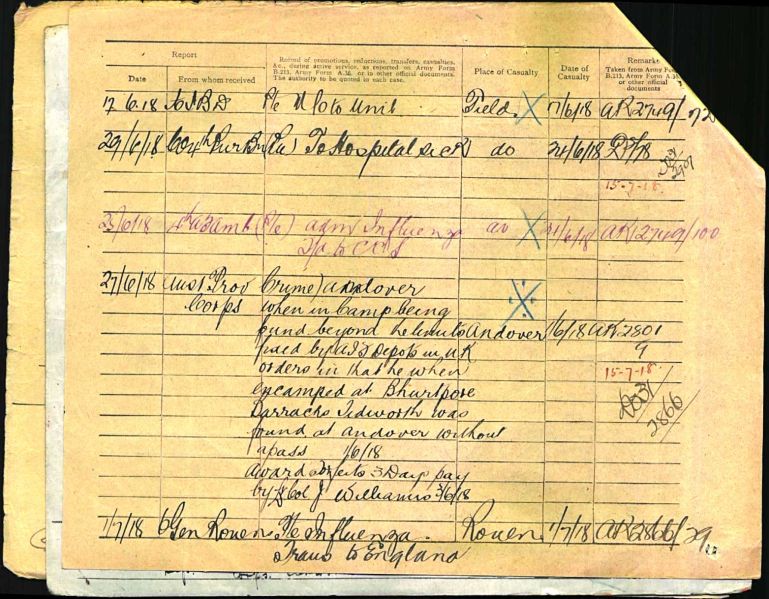 Report
Record of promotions, reductions, transfers, casualties,
&c., during active service, as reported on Army Form
B.213, Army Form A.36, or in other official documents.
The authority to be quoted in each case.
Place of Casualty
Date of
Casualty
Remarks
Taken from Army Form
B.213, Army Form A.36,
or other official
documents
Date
From whom received
12/6/18 to Unit Field 7/6/18 AK2749/
29/6/18 To Hospital sick do 24/6/18
15-7-18
25/6/18 adm Influenza do 21/6/18 AK2749/100
to CCS
27/6/18 Aust Prov Crime) Andover
Corps when in Camp being
found beyond the limits Andover 1/6/18 AK2801
fixed by Depots in UK 9
orders in that he when 15-7-18
encamped at Bhurtpore
Barracks Tidworth was 2866
found at Andover without
a pass 1/6/18
Award 3 Days pay
by Lt Col J Williams 3/6/18
1/7/18 6 Gen Rouen Influenza Rouen 1/7/18 AK2866/29
Trans to England